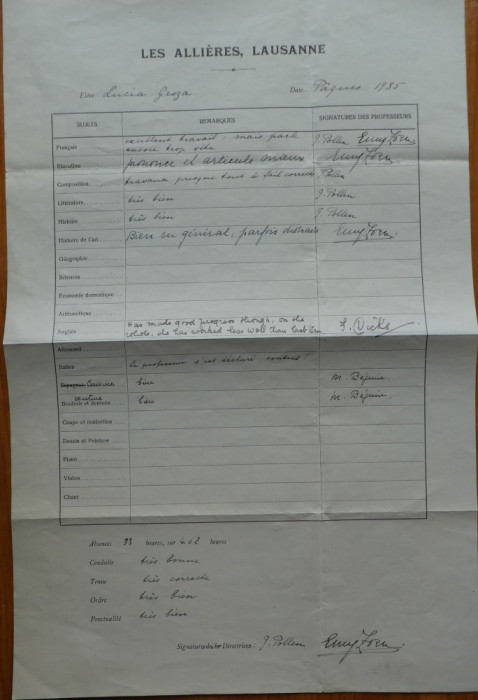 LES ALLIÈRES, LAUSANNE
Elève Lucia Groza Date Pâques 1935
SUJETS REMARQUES SIGNATURES DES PROFESSEURS
Français excellent travail; mais parle
encore trop vite J. Pollen
Diction prononce et articule mieux
Composition travaux presque tout à fait corrects Pollen
Littérature très bien J. Pollen
Histoire très bien J. Pollen
Histoire de l'art Bien en général, parfois distraite
Géographie
Sciences
Economie domestique
Arithmétique
Anglais Has made good progress though, on the
whole, she has worked less well than last term
Allemand
Italien Le professeur s'est déclaré content!
Espagnol bien M. Béguin
Broderie et dentelle bien M. Béguin
Coupe et confection
Dessin et Peinture
Piano
Violon
Chant
Absences 33 heures, sur 462 heures
Conduite très bonne
Tenue très correcte
Ordre très bien
Ponctualité très bien
Signature de la Directrice: J. Pollen